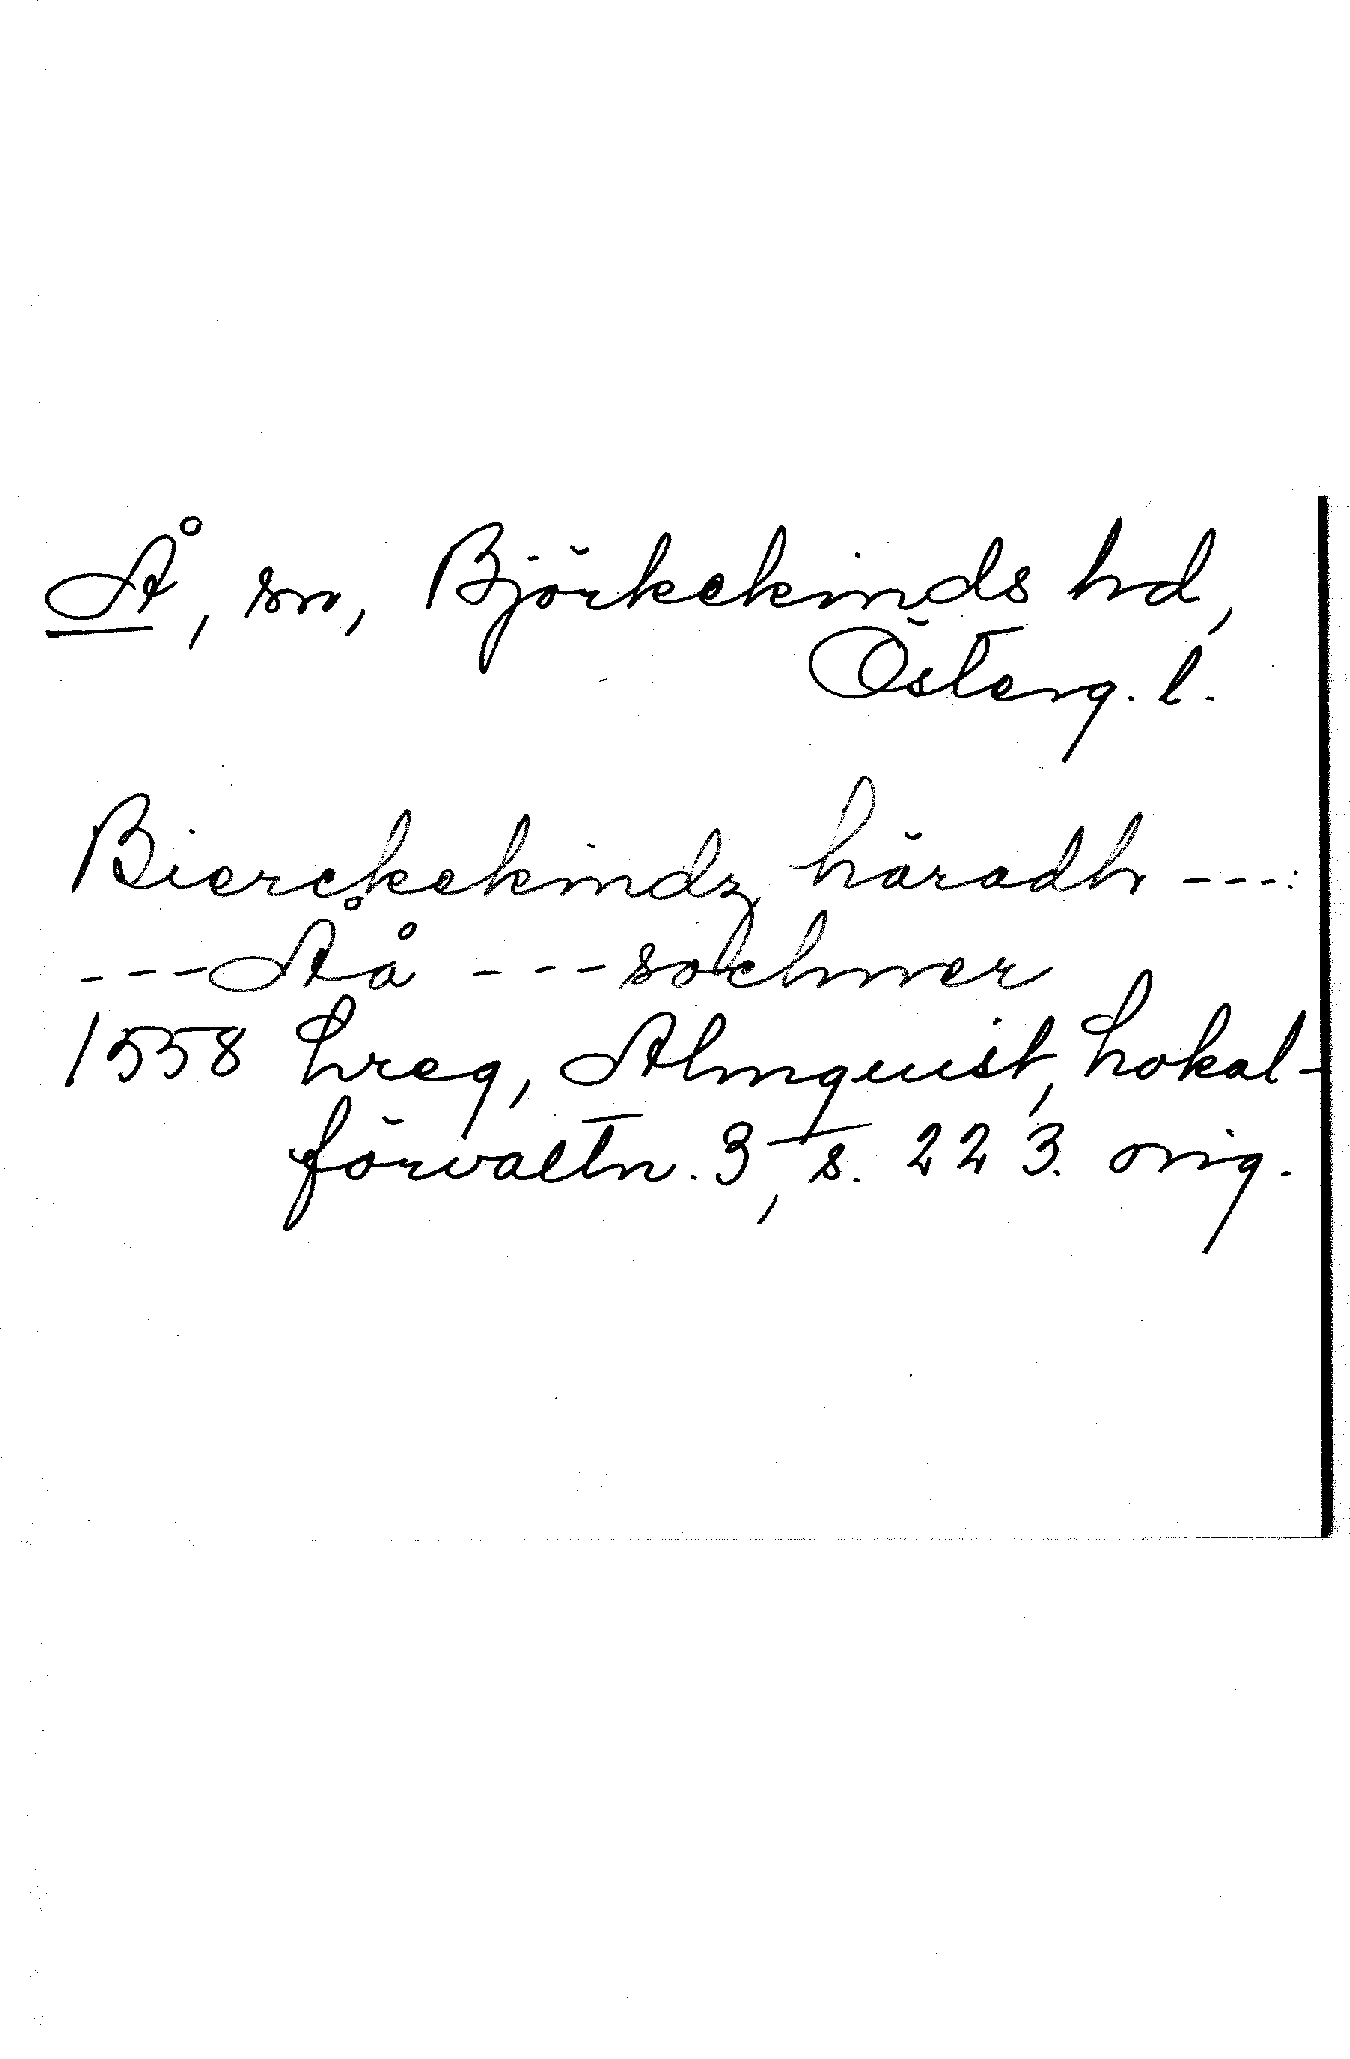 Å, sn, Björkekinds hd,
Österg. l.
Bierckekindz häradh ---:
--- Åå --- sochner
1558 Lreg, Almquist, Lokal-
förvaltn. 3, s. 223. orig.